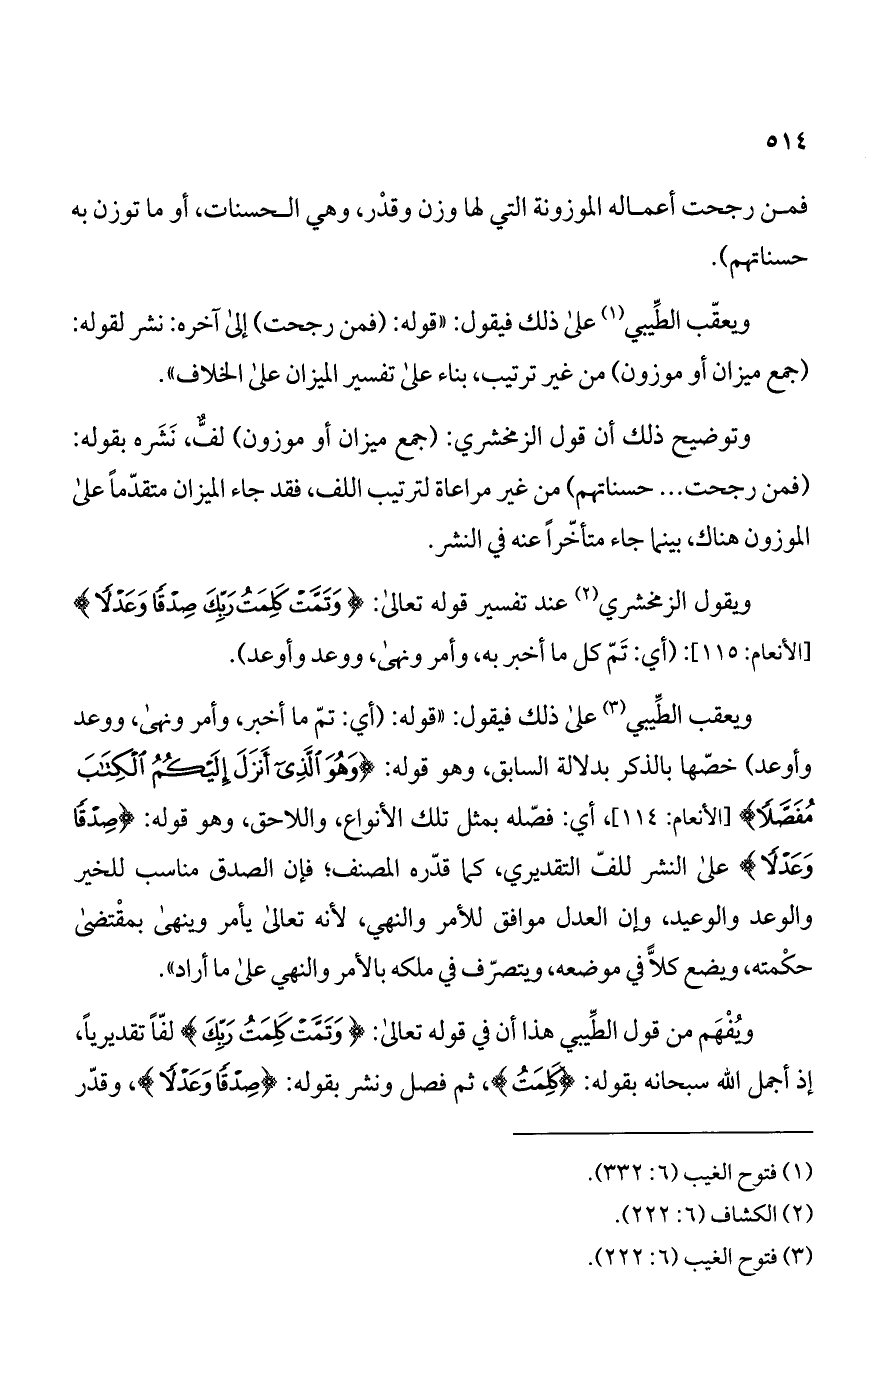 ٥١٤
فمـن رجحت أعمـاله الموزونة التي لها وزن وقدْر، وهي الـحسنات، أو ما توزن به
حسناتهم).
ويعقّب الطِّيبي(١) علىٰ ذلك فيقول: «قوله: (فمن رجحت) إلىٰ آخره: نشر لقوله:
(جمع ميزان أو موزون) من غير ترتيب، بناء علىٰ تفسير الميزان علىٰ الخلاف».
وتوضيح ذلك أن قول الزمخشري: (جمع ميزان أو موزون) لفٌّ، نَشَره بقوله:
(فمن رجحت... حسناتهم) من غير مراعاة لترتيب اللف، فقد جاء الميزان متقدّماً علىٰ
الموزون هناك، بينما جاء متأخّراً عنه في النشر.
ويقول الزمخشري(٢) عند تفسير قوله تعالىٰ: ﴿وَتَمَّتْ كَلِمَتُ رَبِّكَ صِدْقًا وَعَدْلًا﴾
[الأنعام: ١١٥]: (أي: تَمّ كل ما أخبر به، وأمر ونهىٰ، ووعد وأوعد).
ويعقب الطِّيبي(٣) علىٰ ذلك فيقول: «قوله: (أي: تمّ ما أخبر، وأمر ونهىٰ، ووعد
وأوعد) خصّها بالذكر بدلالة السابق، وهو قوله: ﴿وَهُوَ ٱلَّذِىٓ أَنزَلَ إِلَيْكُمُ ٱلْكِتَٰبَ
مُفَصَّلًا﴾ [الأنعام: ١١٤]، أي: فصّله بمثل تلك الأنواع، واللاحق، وهو قوله: ﴿صِدْقًا
وَعَدْلًا﴾ علىٰ النشر للفّ التقديري، كما قدّره المصنف؛ فإن الصدق مناسب للخير
والوعد والوعيد، وإن العدل موافق للأمر والنهي، لأنه تعالىٰ يأمر وينهىٰ بمقْتضىٰ
حكْمته، ويضع كلاًّ في موضعه، ويتصرّف في ملكه بالأمر والنهي علىٰ ما أراد».
ويُفْهَم من قول الطِّيبي هذا أن في قوله تعالىٰ: ﴿وَتَمَّتْ كَلِمَتُ رَبِّكَ﴾ لفّاً تقديرياً،
إذ أجمل الله سبحانه بقوله: ﴿كَلِمَتُ﴾، ثم فصل ونشر بقوله: ﴿صِدْقًا وَعَدْلًا﴾، وقدّر
(١) فتوح الغيب (٦: ٣٣٢).
(٢) الكشاف (٦: ٢٢٢).
(٣) فتوح الغيب (٦: ٢٢٢).